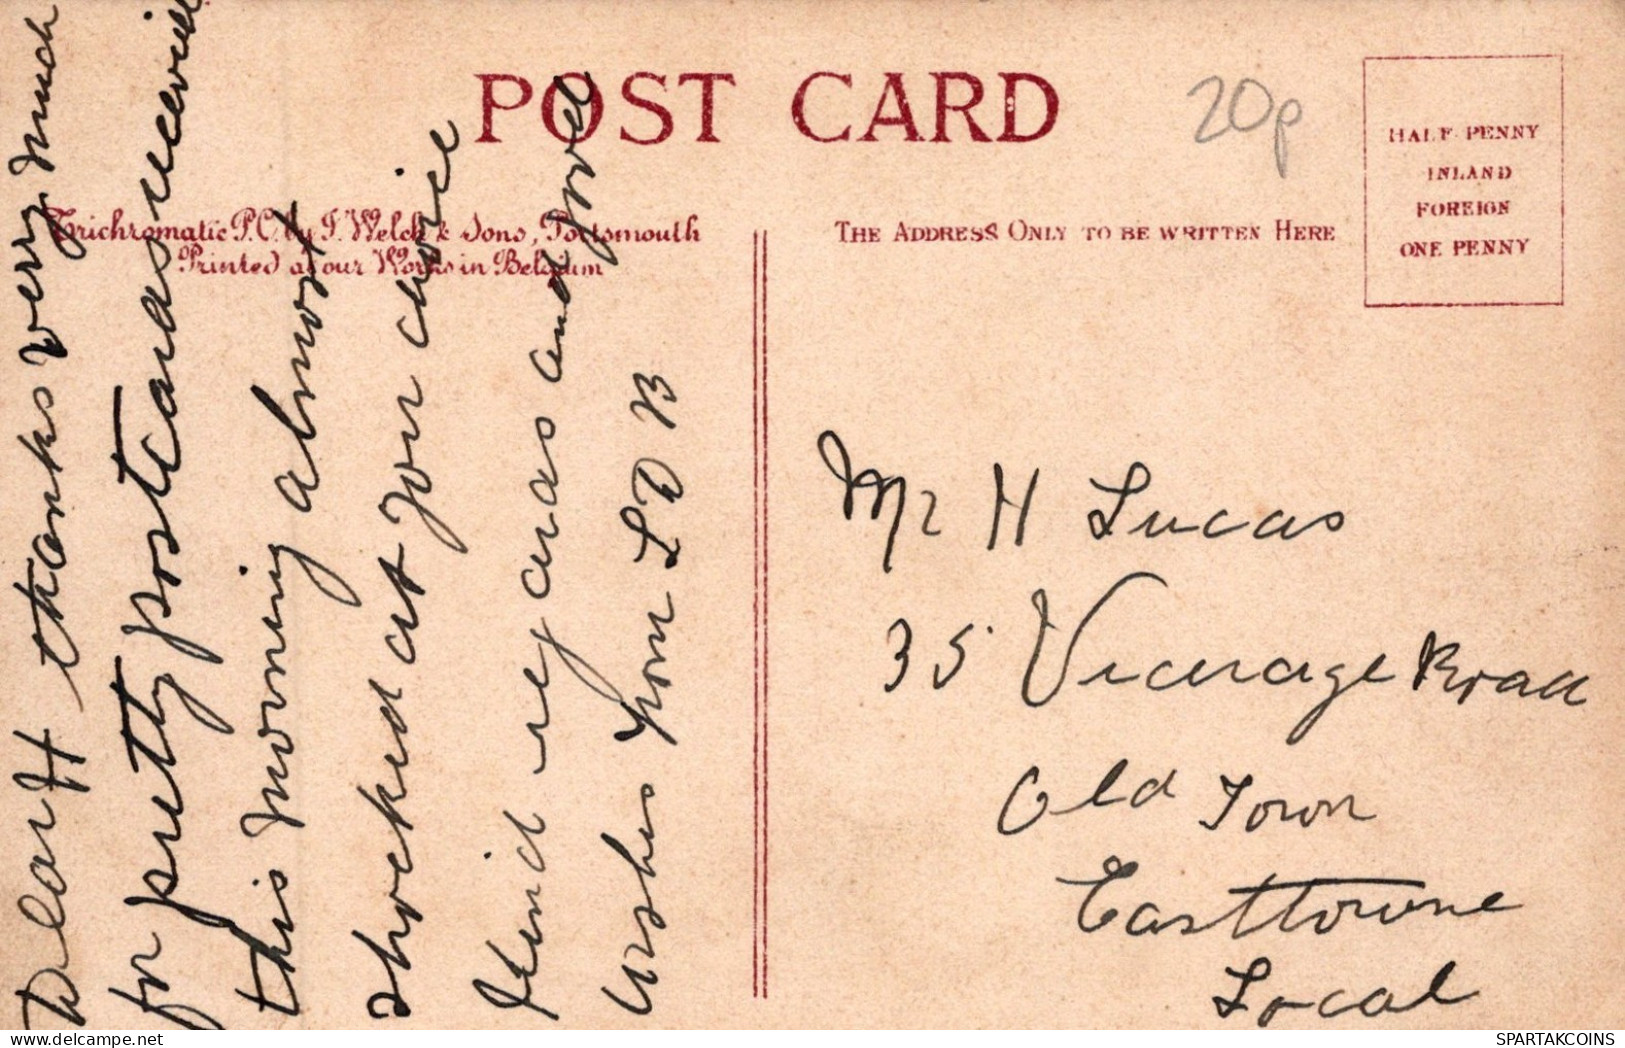 POST CARD
20p
HALF PENNY
INLAND
FOREIGN
ONE PENNY
Trichromatic P.C. by J. Welch & Sons, Portsmouth
Printed at our Works in Belgium
THE ADDRESS ONLY TO BE WRITTEN HERE
Dear H thanks very much
for pretty postcards received
this morning almost
shocked at your choice
Kind regards and good
wishes from L D B
Mr H Lucas
35 Vicerage Road
Old Town
Easttowne
Local
SPARTAKCOINS